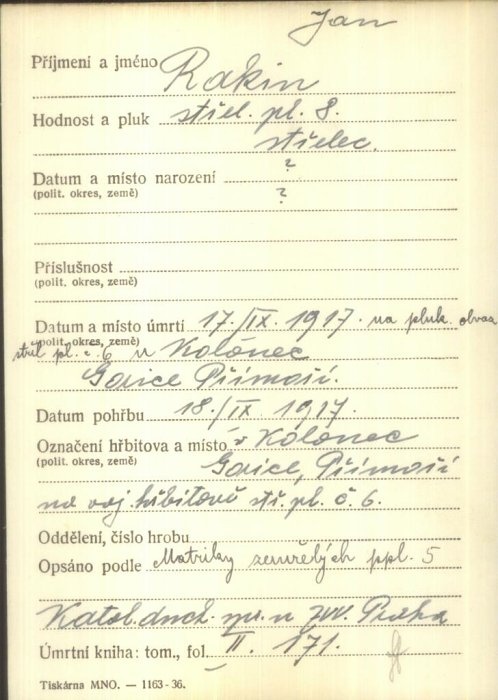 Jan
Příjmení a jméno Rakin
Hodnost a pluk střel. pl. 8.
střelec.
Datum a místo narození ?
(polit. okres, země) ?
Příslušnost
(polit. okres, země)
Datum a místo úmrtí 17./IX. 1917. na pluk. obvaz
(polit. okres, země)
střel pl. č. 6 u Kolonec
Gorice Přímoří.
Datum pohřbu 18./IX 1917.
Označení hřbitova a místo v Kolonec
(polit. okres, země) Gorice, Přímoří
na voj. hřbitově stř. pl. č. 6.
Oddělení, číslo hrobu
Opsáno podle Matriky zemřelých ppl. 5
Katol. duch. spr. u zvv. Praha
Úmrtní kniha: tom., fol. II. 171.
Tiskárna MNO. — 1163-36.